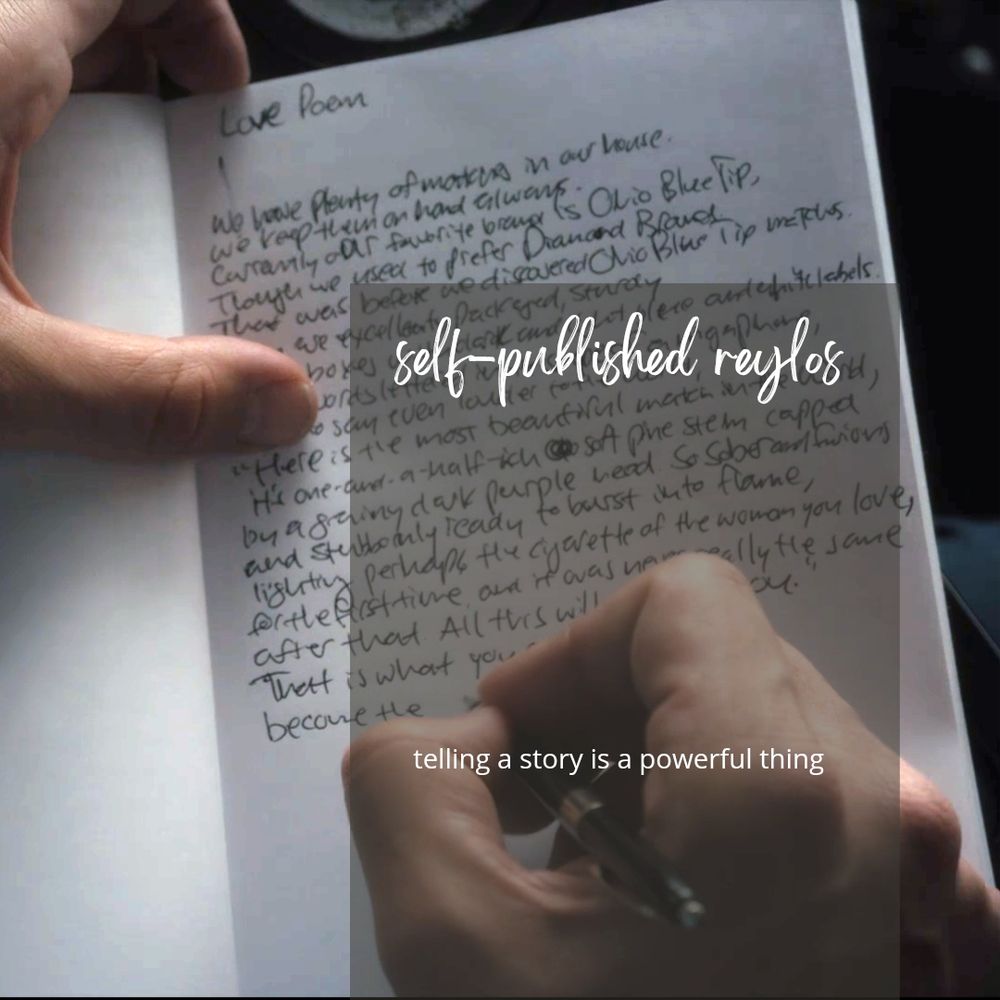 Love Poem
We have plenty of matches in our house.
We keep them on hand always.
Currently our favorite brand is Ohio Blue Tip,
Though we used to prefer Diamond Brand
That was before we discovered Ohio Blue Tip matches.
excellently packaged, sturdy
boxes dark and and white labels.
words
say even louder to
"Here is the most beautiful match in
It's one-and-a-half-inch soft pine stem capped
by a grainy dark purple head. So sober and furious
and stubbornly ready to burst into flame,
lighting perhaps the cigarette of the woman you love,
for the first time, and it was never really the same
after that. All this will you."
That is what you
become the
self-published reylos
telling a story is a powerful thing